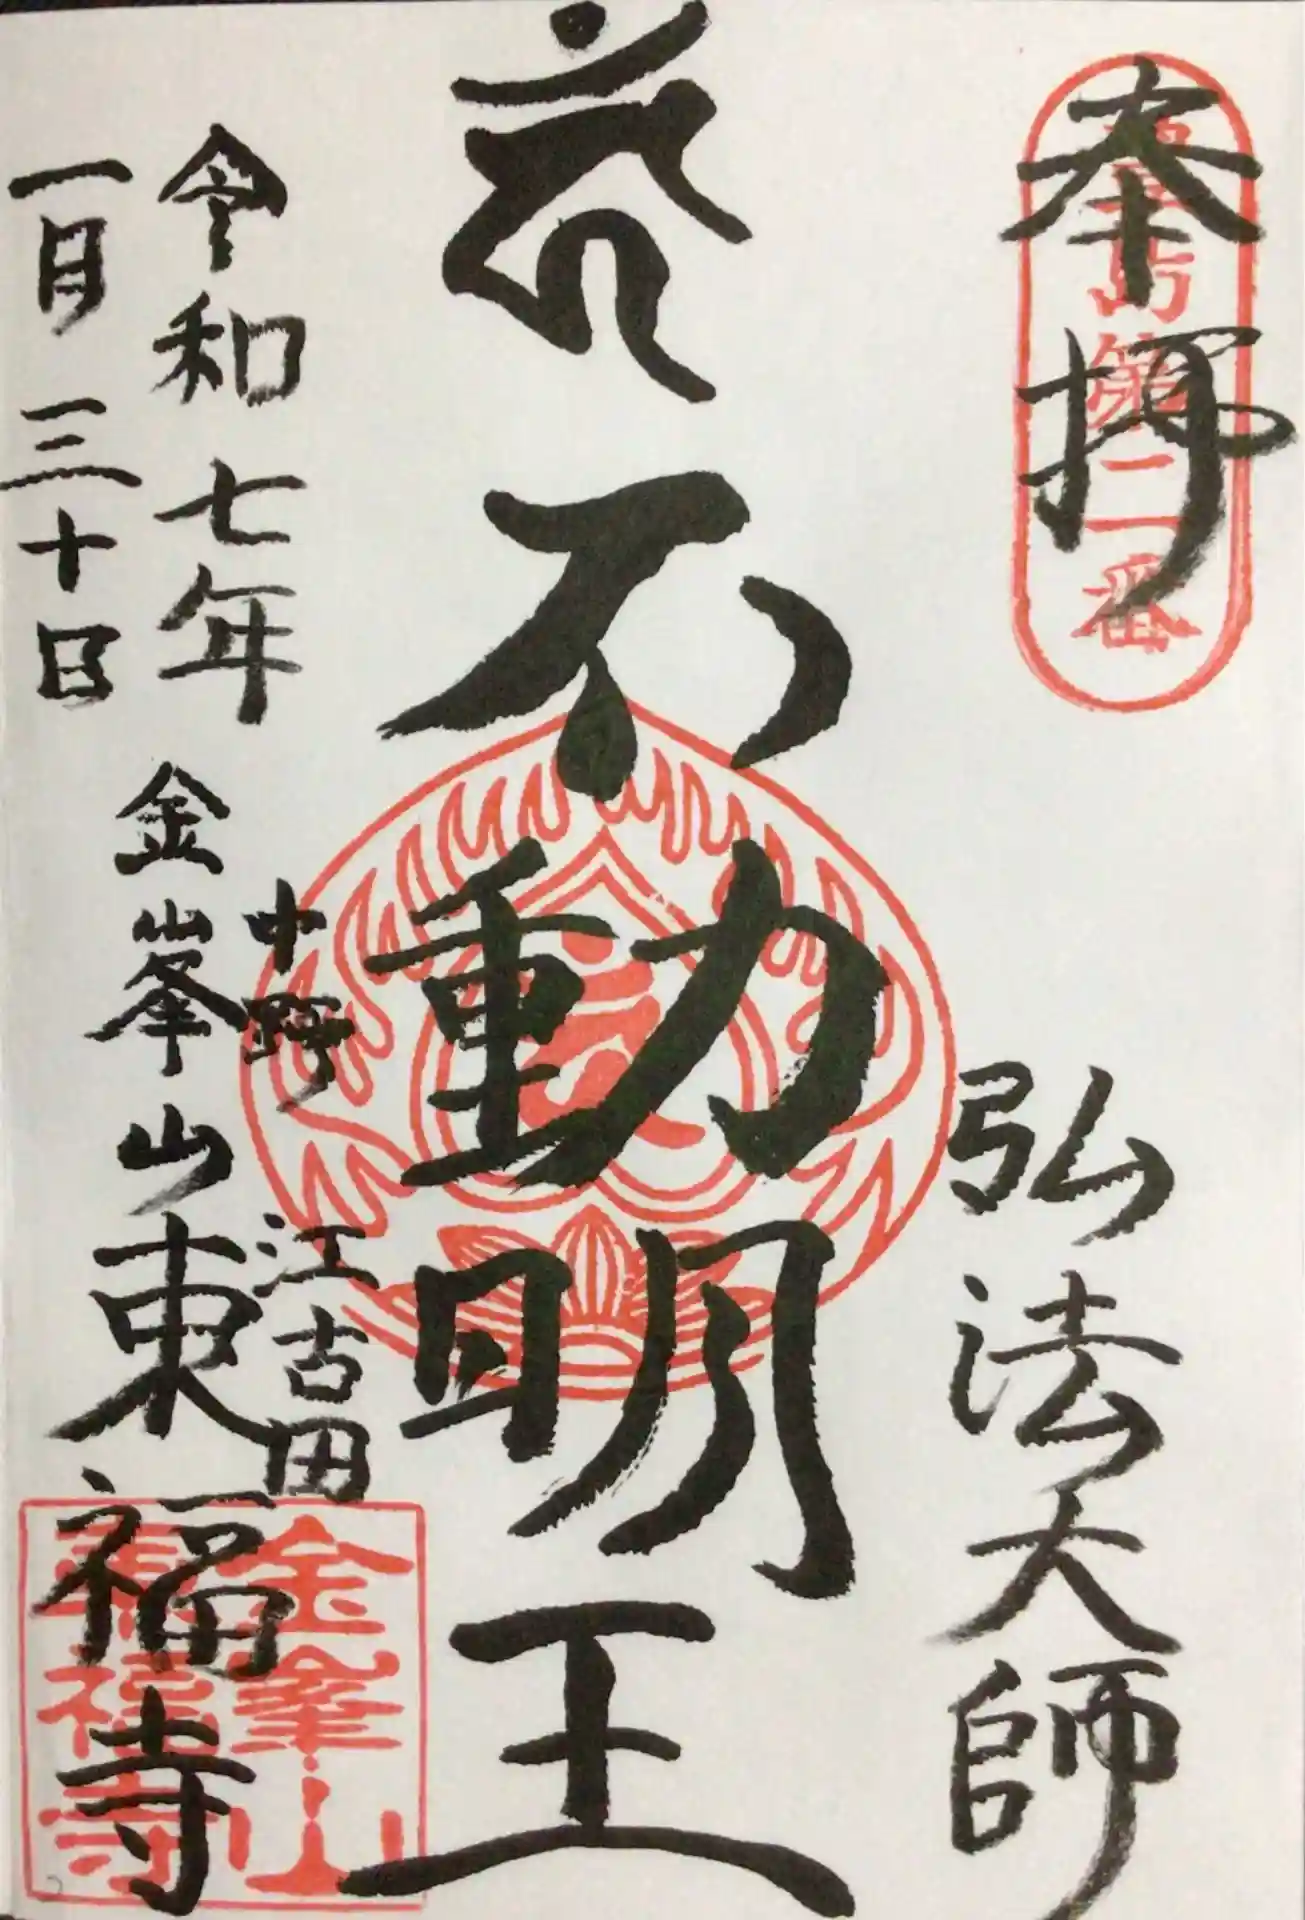 奉拝
豊島第二番
弘法大師
不動明王
令和七年
一月三十日
中野 江古田
金峯山東福寺
金峯山
東福寺